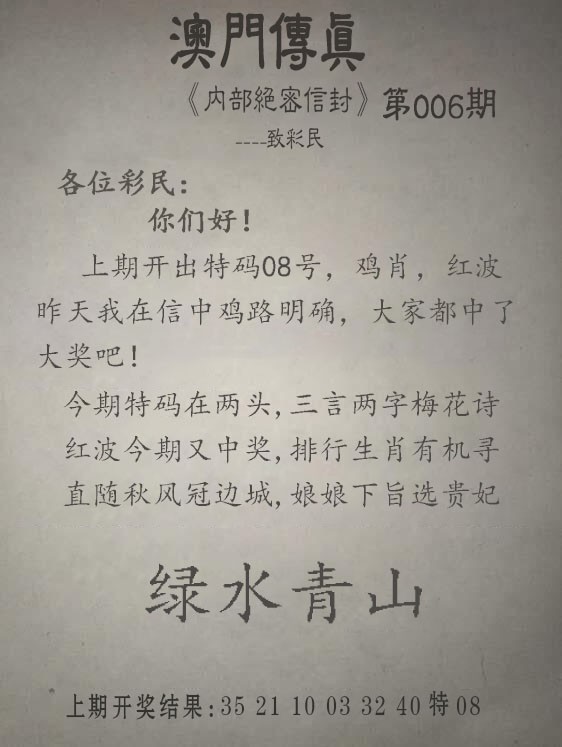 澳門傳眞
《内部絕密信封》第006期
----致彩民
各位彩民：
你们好！
上期开出特码08号，鸡肖，红波
昨天我在信中鸡路明确，大家都中了
大奖吧！
今期特码在两头,三言两字梅花诗
红波今期又中奖,排行生肖有机寻
直随秋风冠边城,娘娘下旨选贵妃
绿水青山
上期开奖结果:35 21 10 03 32 40 特08